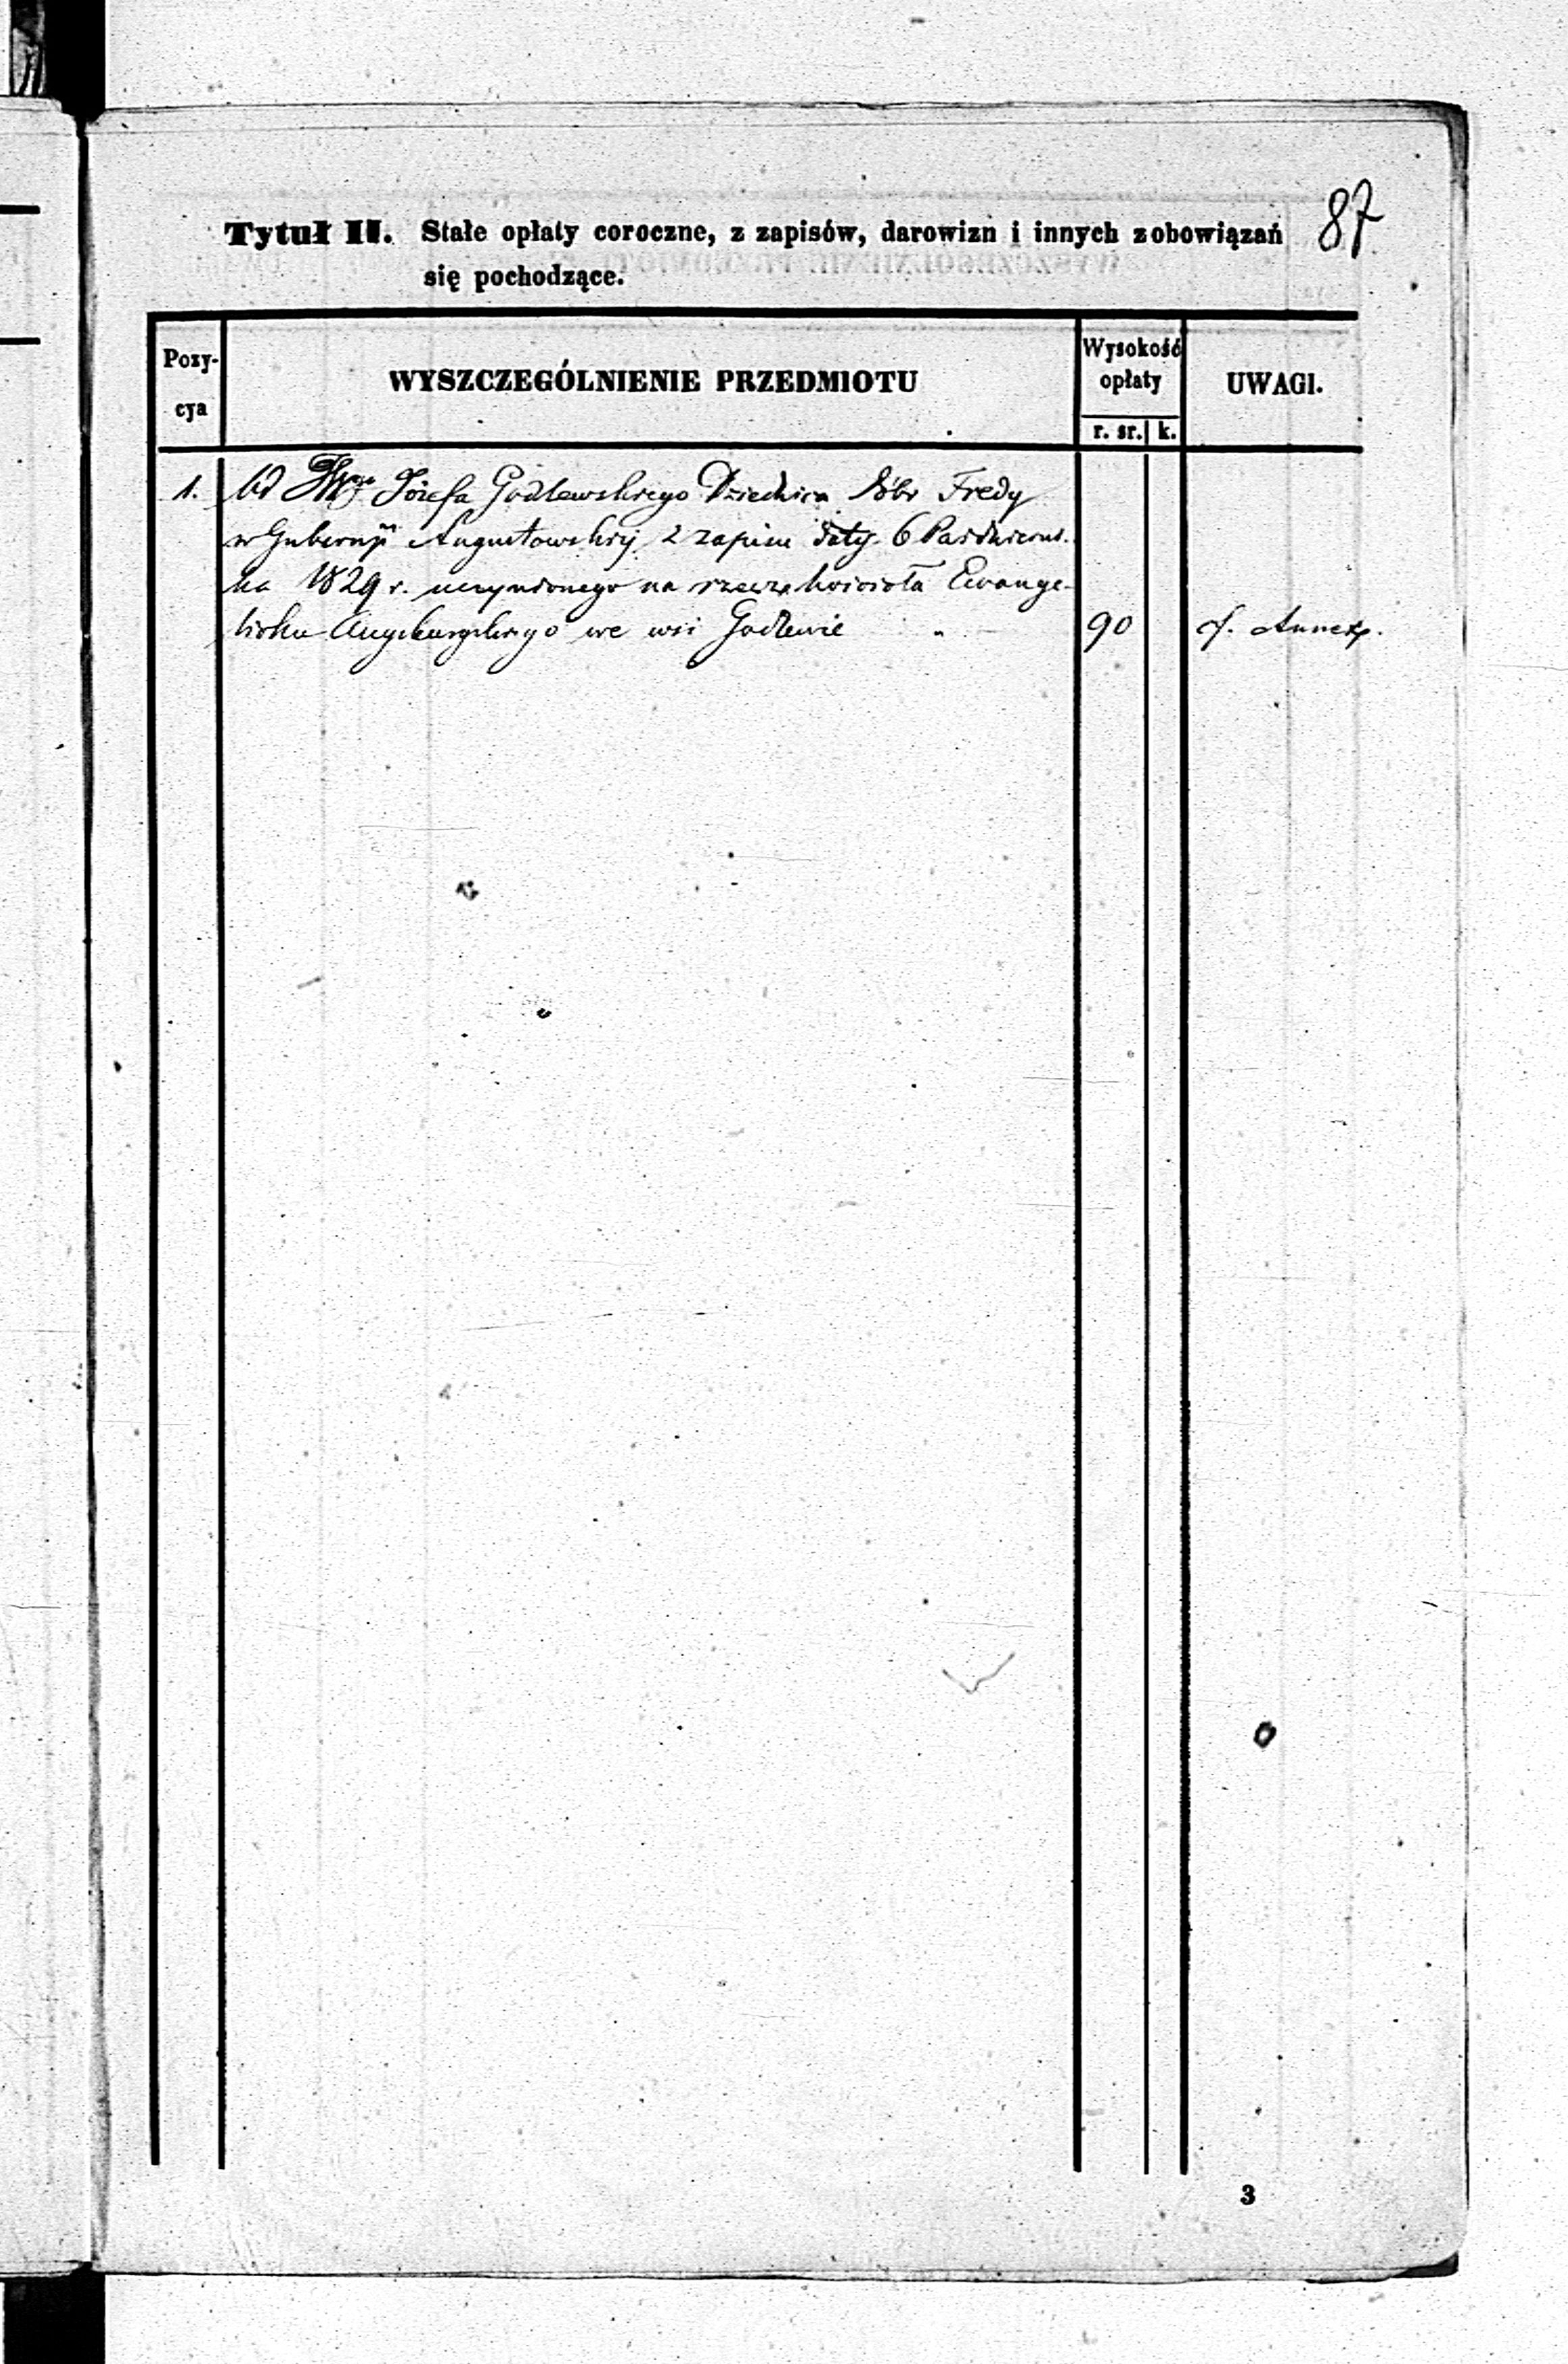 87
Tytuł II. Stałe opłaty coroczne, z zapisów, darowizn i innych zobowiązań
się pochodzące.
Pozy-
cya
WYSZCZEGÓLNIENIE PRZEDMIOTU
Wysokość
opłaty
r. sr. k.
UWAGI.
1. Od Józefa Godlewskiego Dziedzica Dóbr Fredy
w Gubernji Augustowskiej z zapisu daty 6 Październi-
ka 1829 r. uczynionego na rzecz kościoła Ewange-
licko Augsburgskiego we wsi Godlewie 90 cf. Annexp.
3